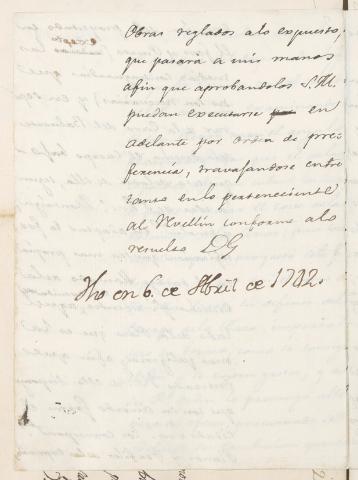 Obras reglados alo expuesto,
que pasará a mis manos
afin que aprobandolos S.M.
puedan executarse en
adelante por orden de pre-
ferencia, travajandose entre
tanto enlo perteneciente
al Muellin conforme alo
resuelto D G
Fho en 6. de Abril de 1782.